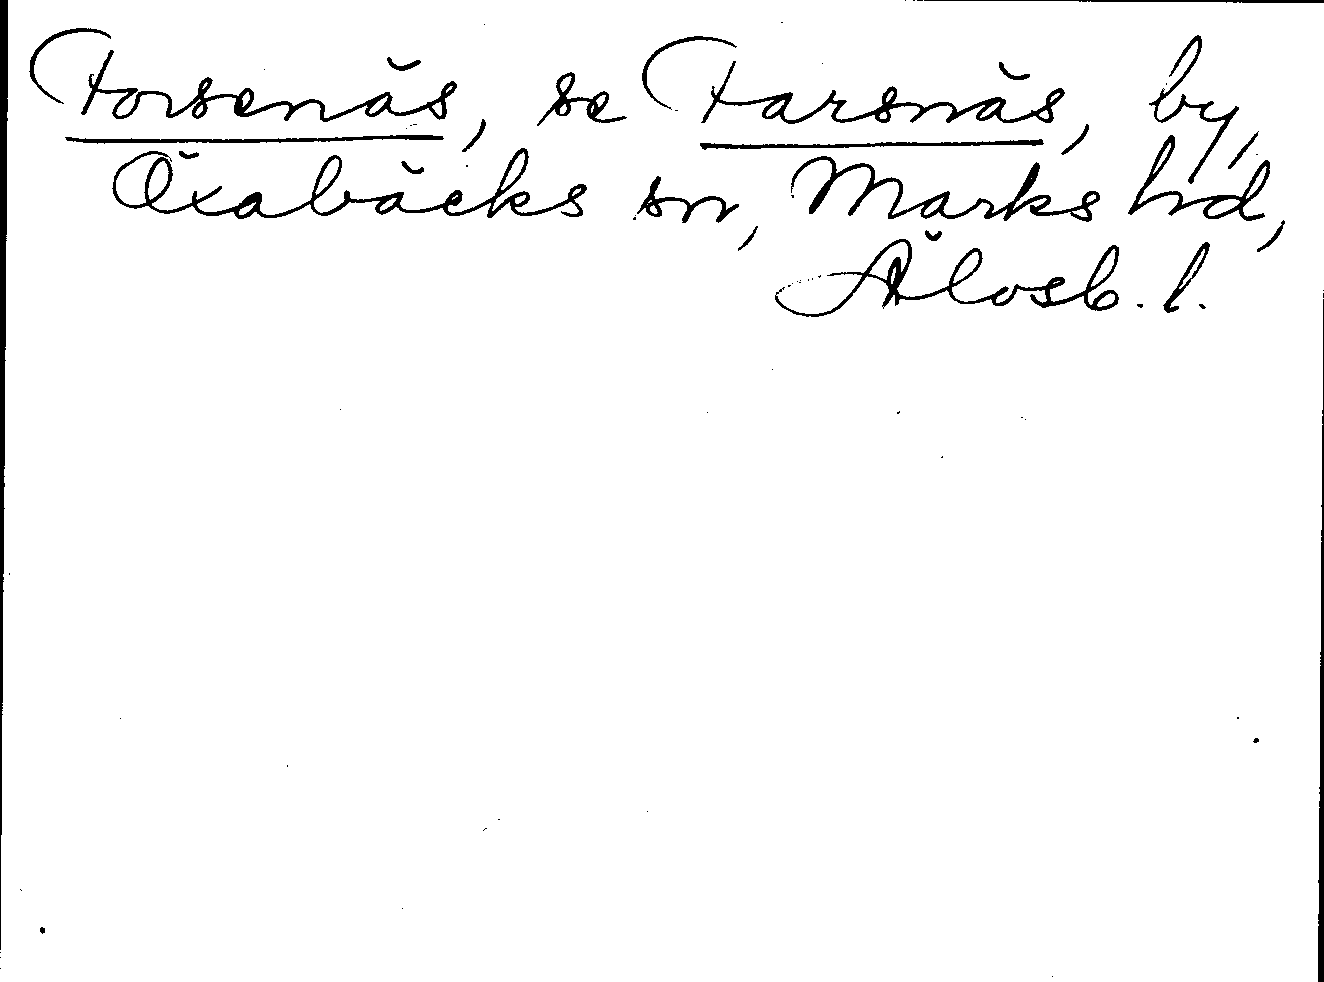 Forsenäs, se Farsnäs, by,
Öxabäcks sn, Marks hd,
Älvsb. l.